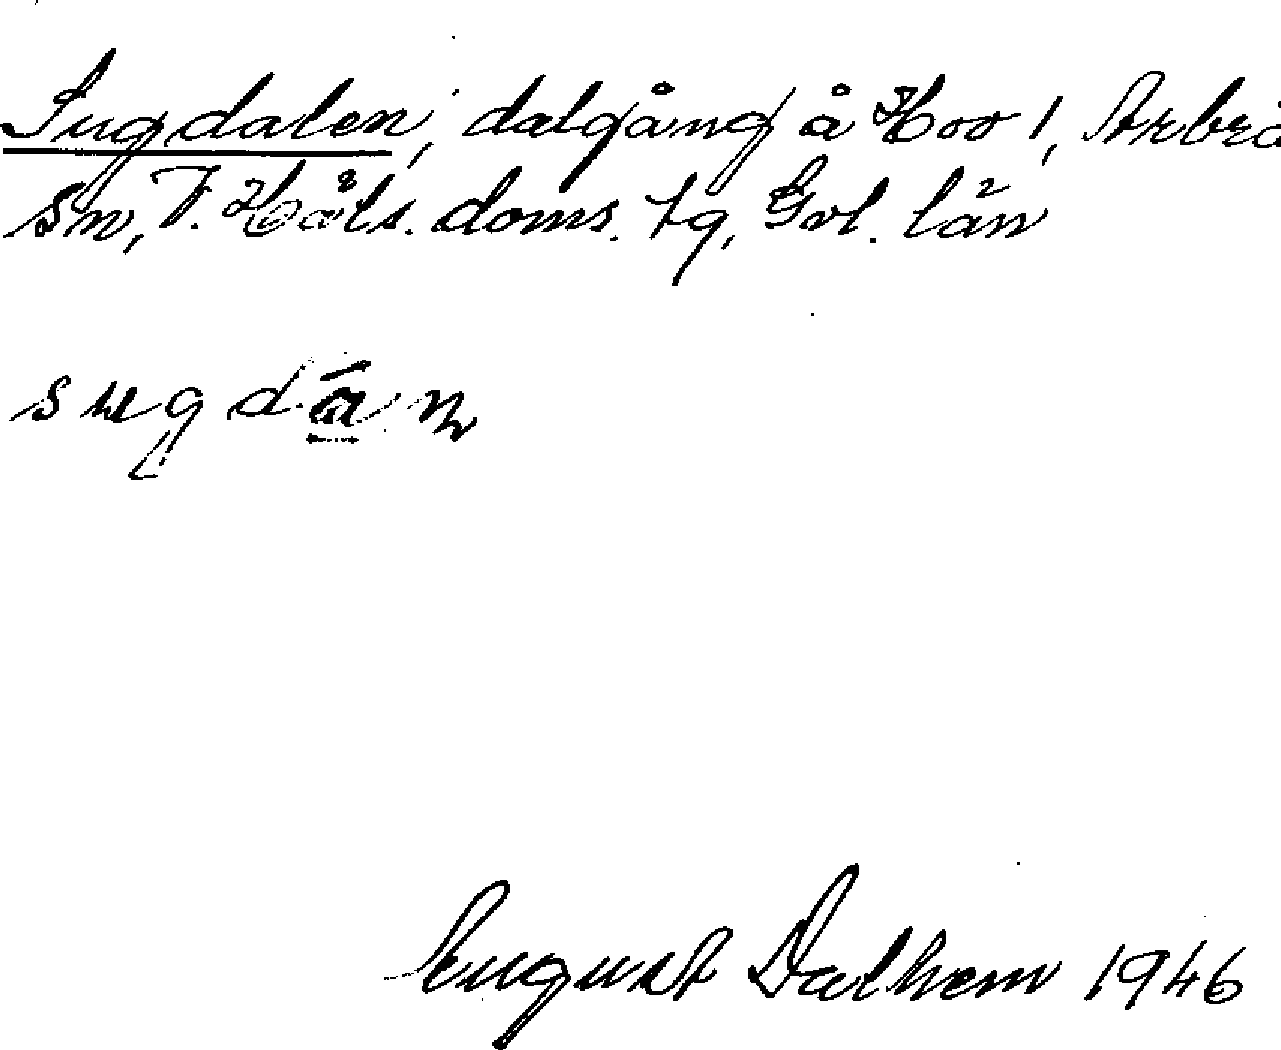 Sugdalen, dalgång å Koo 1, Arbrå
sn, V. Häls. doms. tg, Gvl. län
sugdān
August Dalhem 1946